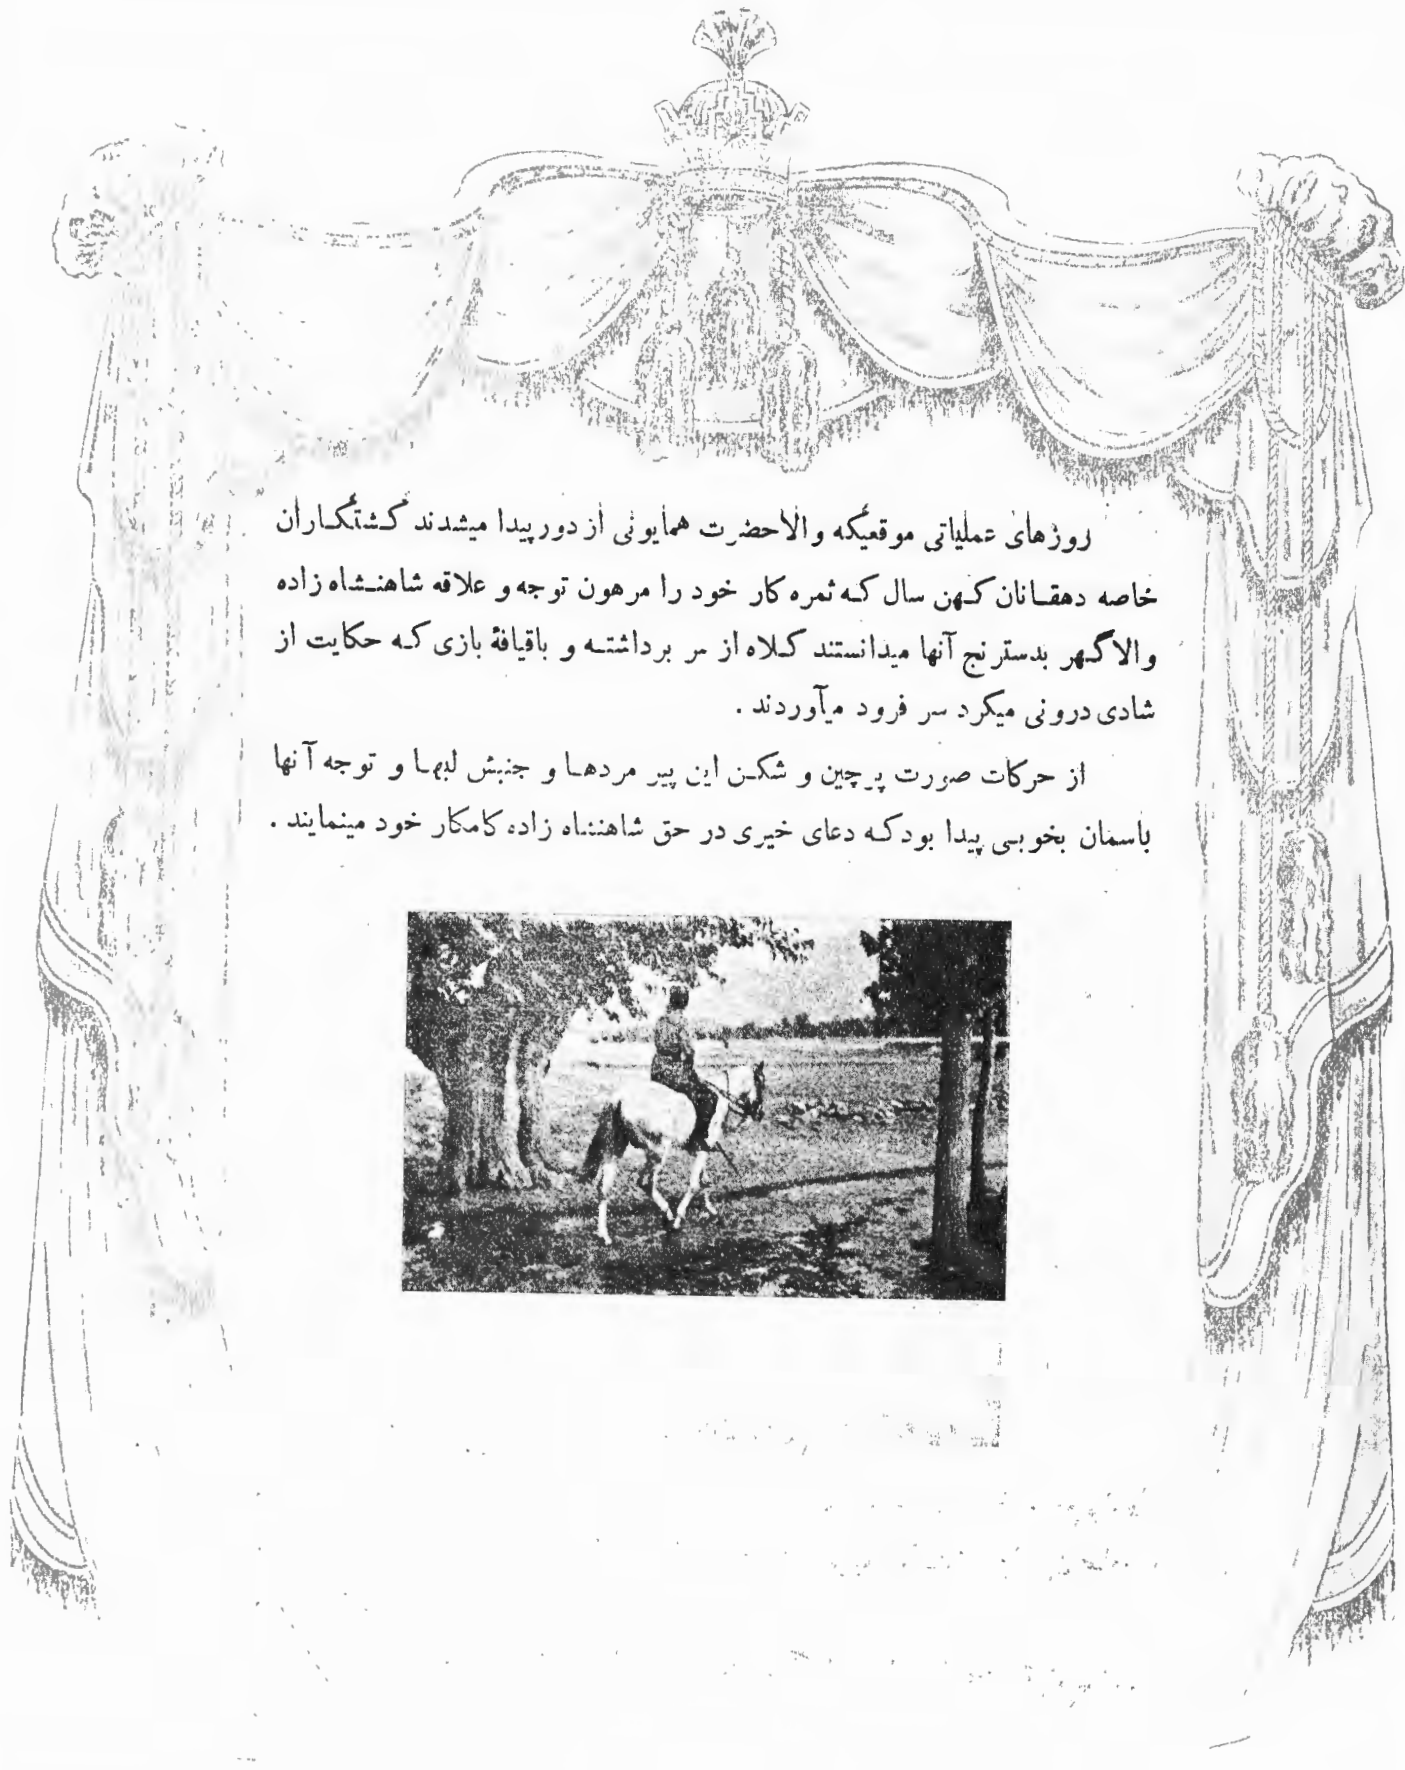 روزهای عملیاتی موقعیگه والاحضرت همایونی از دور پیدا میشدند گشتگاران
خاصه دهقانان کهن سال که ثمره کار خود را مرهون توجه و علاقه شاهنشاه زاده
والاگهر بدسترنج آنها میدانستند کلاه از سر برداشته و باقیافهٔ بازی که حکایت از
شادی درونی میکرد سر فرود میآوردند .
از حرکات صورت پرچین و شکن این پیر مردها و جنبش لبها و توجه آنها
باسمان بخوبی پیدا بود که دعای خیری در حق شاهنشاه زاده کامکار خود مینمایند .